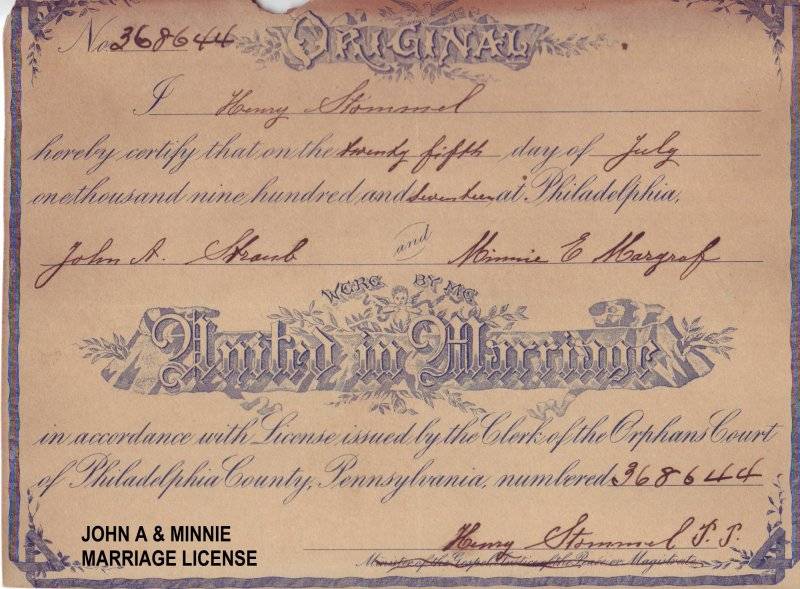 No 368644 ORIGINAL
I Henry Stommel
hereby certify that on the twenty fifth day of July
one thousand nine hundred and seventeen at Philadelphia,
John A. Straub and Minnie E Margraf
WERE BY ME
United in Marriage
in accordance with License issued by the Clerk of the Orphans Court
of Philadelphia County, Pennsylvania, numbered 368644
Henry Stommel P. P.
Minister of the Gospel Justice of the Peace or Magistrate
JOHN A & MINNIE
MARRIAGE LICENSE